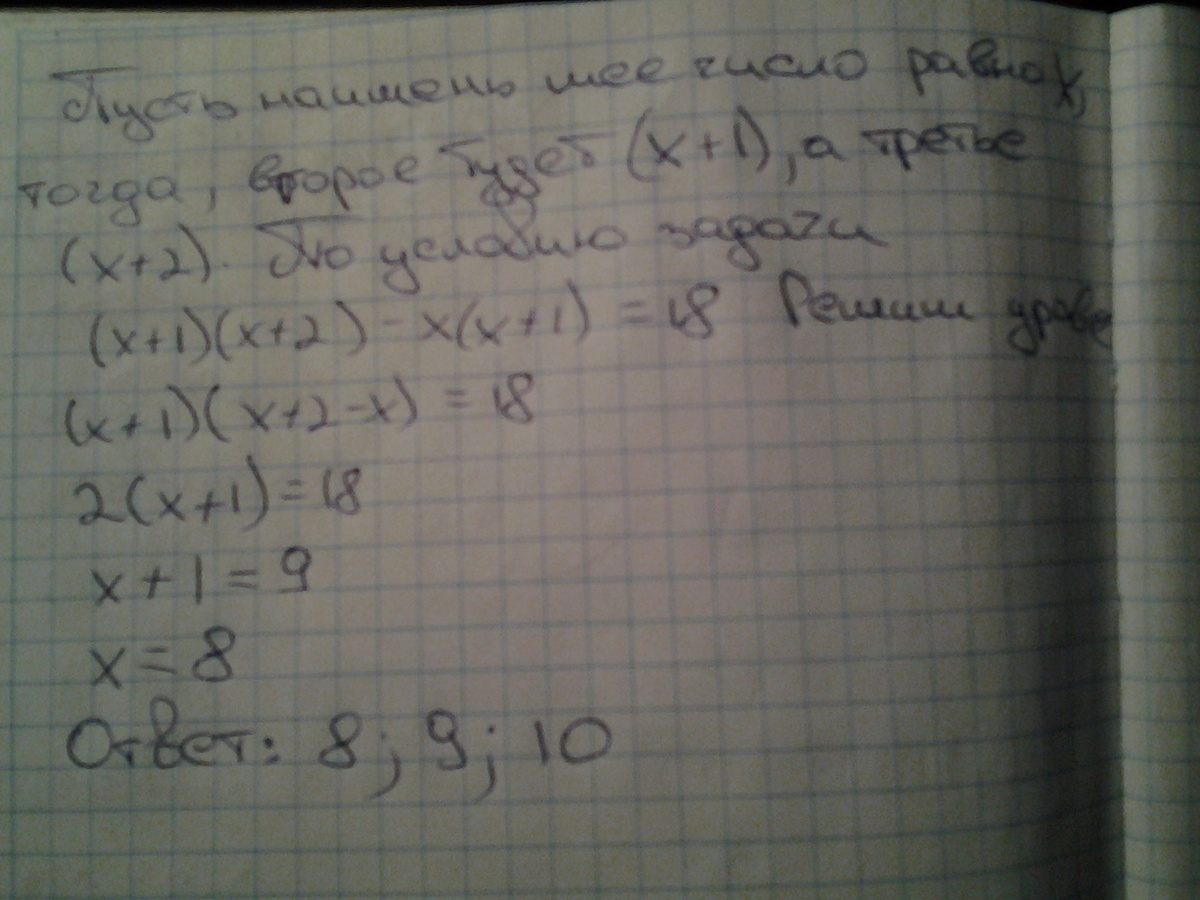 Пусть наименьшее число равно x,
тогда, второе будет (x+1), а третье
(x+2). По условию задачи
(x+1)(x+2) - x(x+1) = 18 Решим уравне
(x+1)(x+2-x) = 18
2(x+1)=18
x+1=9
x=8
Ответ: 8; 9; 10